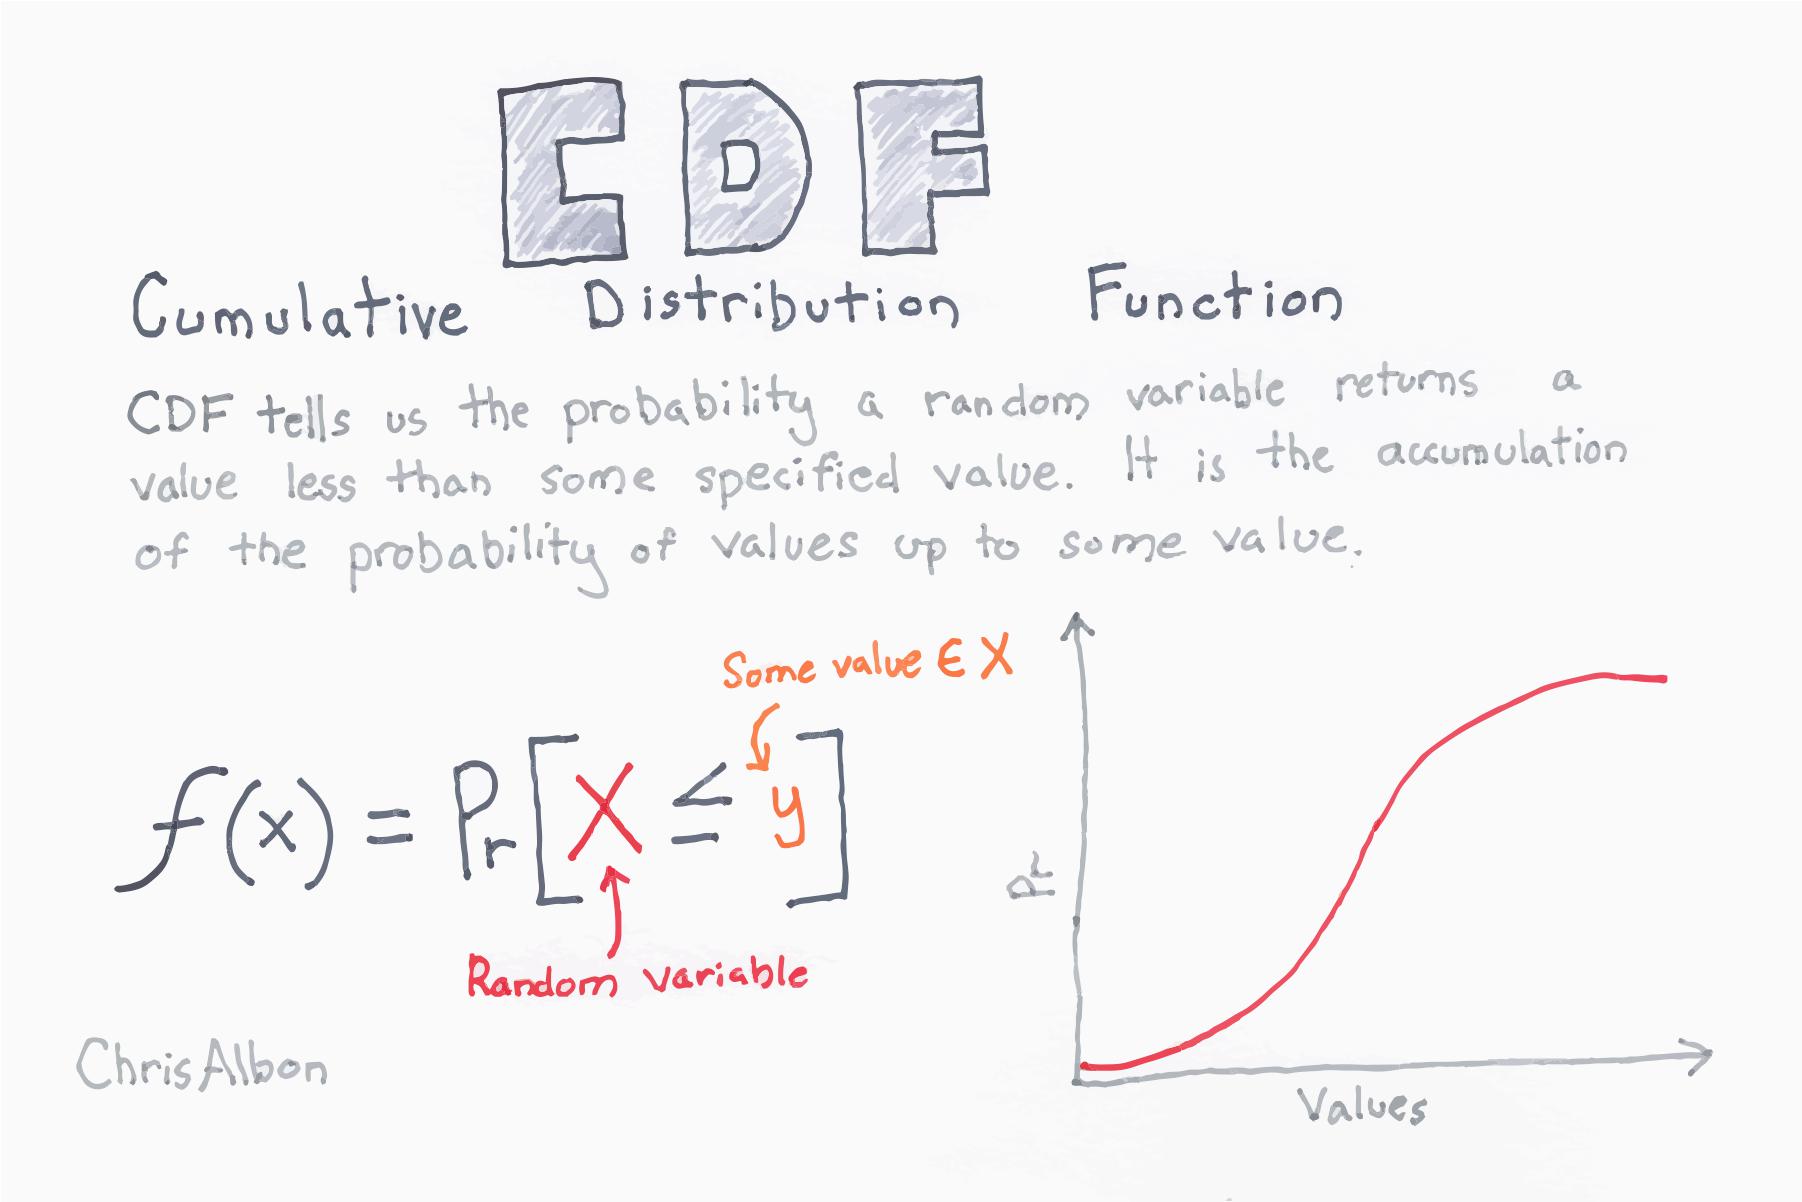 CDF
Cumulative Distribution Function
CDF tells us the probability a random variable returns a
value less than some specified value. It is the accumulation
of the probability of values up to some value.
Some value ∈ X
f(x) = Pr[X ≤ y]
Random variable
Pr
Values
ChrisAlbon